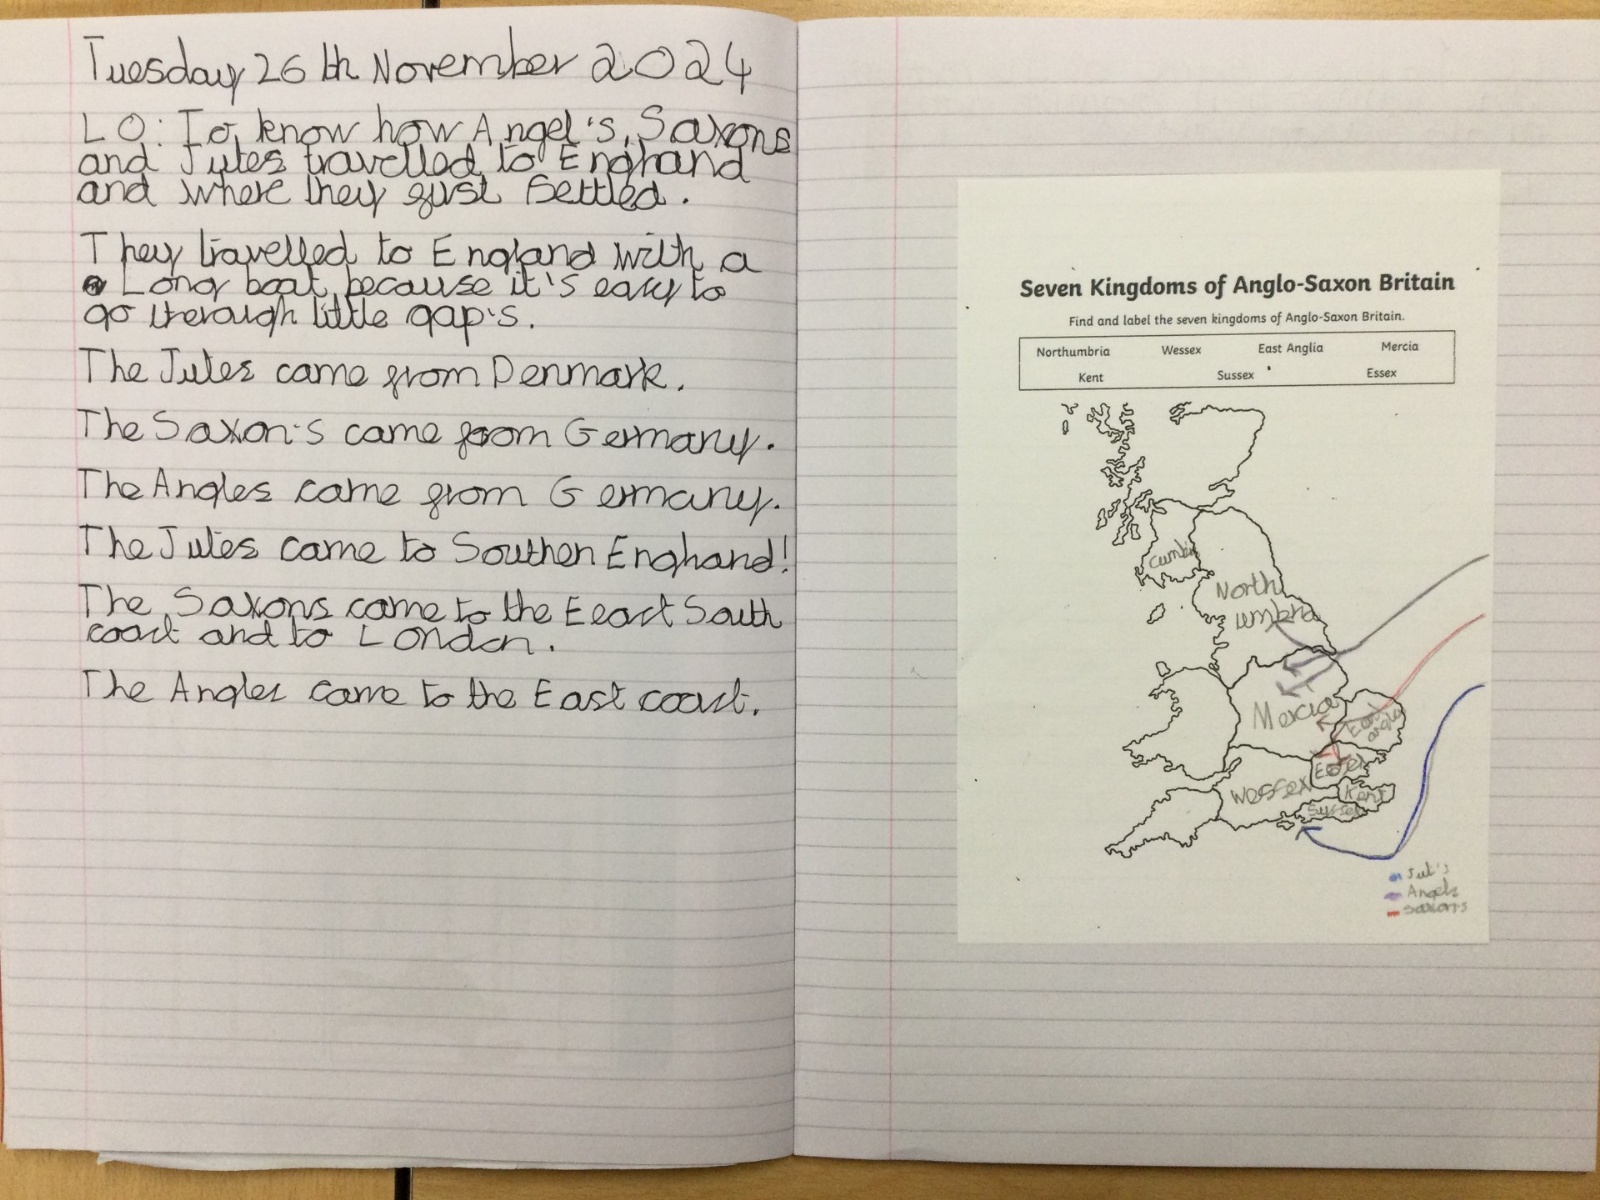 Tuesday 26th November 2024
LO: To know how Angel's, Saxons
and Jutes travelled to Enghand
and where they first settled.
They travelled to England with a
Long boat because it's easy to
go therough little gap's.
The Jutes came from Denmark.
The Saxon's came from Germany.
The Angles came from Germany.
The Jutes came to Southen Enghand!
The Saxons came to the Eeast South
coast and to London.
The Angles came to the East coast.
Seven Kingdoms of Anglo-Saxon Britain
Find and label the seven kingdoms of Anglo-Saxon Britain.
Northumbria Wessex East Anglia Mercia
Kent Sussex Essex
North
Mercia
East
Wessex
Kent
Jut's
Angels
Saxons